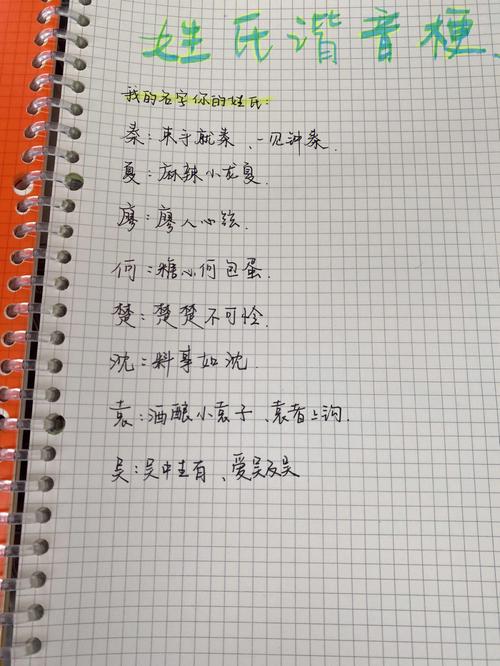 姓氏谐音梗
我的名字你的姓氏:
秦:束手就秦、一见钟秦.
夏:麻辣小龙夏.
廖:廖人心弦.
何:糖心何包蛋.
楚:楚楚不可怜.
沈:料事如沈.
袁:酒酿小袁子、袁者上钩.
吴:吴中生有、爱吴及吴